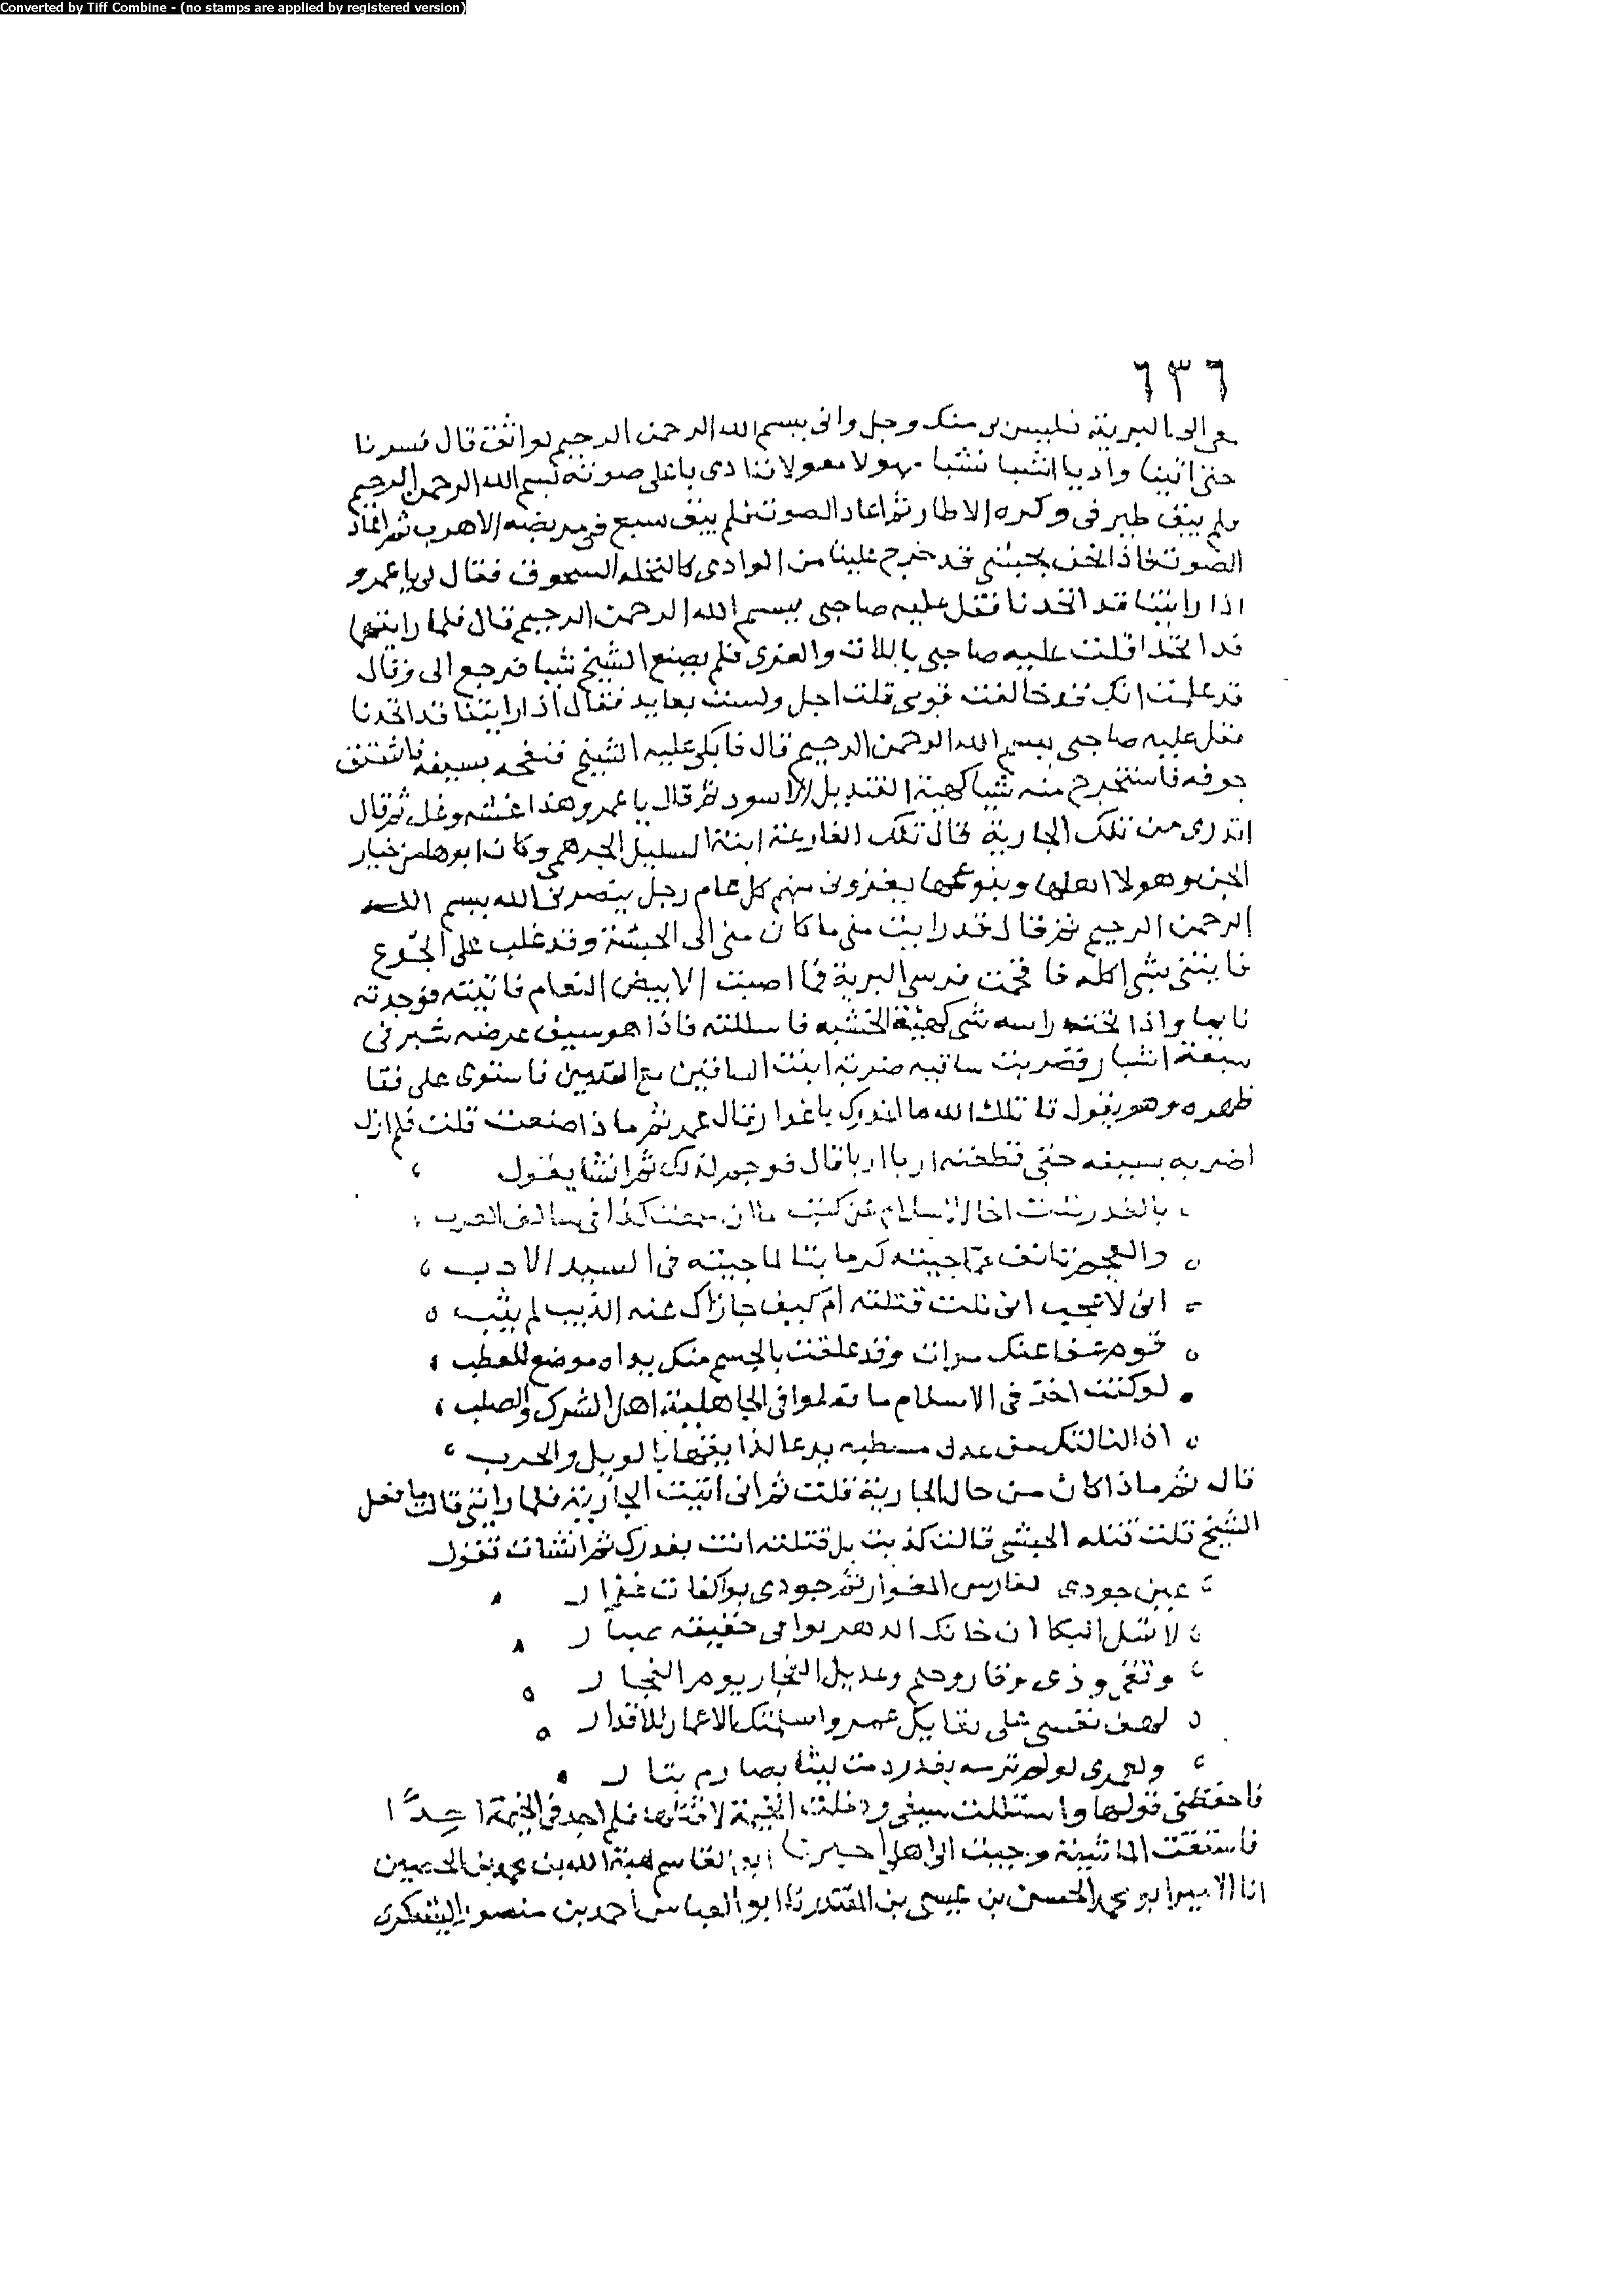 Converted by Tiff Combine - (no stamps are applied by registered version)
٦٣٦
معى الى البرية فليس بى منك وجل وانى ببسم الله الرحمن الرحيم لواثق قال فسرنا
حتى اتينا واديا اشبا نشبا مهولا مغولا فنادى باعلى صوته بسم الله الرحمن الرحيم
فلم يبق طير فى وكره الا طار ثم اعاد الصوت فلم يبق سبع فى مربضه الا هرب ثم اعاد
الصوت فاذا نحن بحبشى قد خرج علينا من الوادى كالنخله السحوق فقال لى يا عمرو
اذا رايتنا قد اتحدنا فقل غلبه صاحبى ببسم الله الرحمن الرحيم قال فلما رايتهما
قد اتحدا قلت غلبه صاحبى باللات والعزى فلم يصنع الشيخ شيا فرجع الى وقال
قد علمت انك قد خالفت قولى قلت اجل ولست بعايد فقال اذا رايتنا قد اتحدنا
فقل غلبه صاحبى ببسم الله الرحمن الرحيم قال فاتكى عليه الشيخ فنفحه بسيفه فاشتق
جوفه فاستخرج منه شيا كهية القنديل الاسود ثم قال يا عمرو هذا غشه وغله ثم قال
اتدرى من تلك الجارية قال تلك الفارعة ابنة السليل الجرهمى وكان ابوها من خيار
الجن وهولا اهلها وبنو عمها يغزونى منهم كل عام رجل ينصرنى الله ببسم الله
الرحمن الرحيم ثم قال قد رايت منى ما كان منى الى الحبشة وقد غلب على الجوع
فايتنى بشى اكله فاقحمت فرسى البرية فما اصبت الا بيض النعام فاتيته فوجدته
نايما واذا تحت راسه شى كهيئة الخشبه فاستللته فاذا هو سيف عرضه شبر فى
سبعة اشبار فضربت ساقيه ضربة ابنت الساقين مع القدمين فاستوى على فقا
ظهره وهو يقول قاتلك الله ما اغدرك يا غدار قال عمر ثم ماذا صنعت قلت فلم ازل
اضربه بسيفه حتى قطعته اربا اربا قال فوجم لذلك ثم انشا يقول
بالغدر نلت اخا الاسلام عن كثب ما ان سمعت كذا فى سالف العرب
والعجم تانف مما جيته كرما تبا لما جيته فى السيد الادب
انى لاعجب انى نلت قتلته ام كيف جازاك عنه الذيب لم يثب
قرم عفا عنك مرات وقد علقت بالجسم منك يداه موضع العطب
لو كنت اخذ فى الاسلام ما فعلوا فى الجاهلية اهل الشرك والصلب
اذا لنالتك من عدلى يدعا لذايقها بالويل والحرب
قال ثم ماذا كان من حال الجارية قلت ثم انى اتيت الجارية فلما راتنى قالت ما فعل
الشيخ قلت قتله الحبشى قالت كذبت بل قتلته انت بغدرك ثم انشات تقول
عين جودى لفارس المغوار ثم جودى بواكفات غزار
لا تملى البكا ان خانك الدهر بوافى حقيقه صبار
وتقى وذى وقار وحلم وعديل الفخار يوم الفخار
لهف نفسى على بقايك عمرو اسلمتك الاعمار للاقدار
ولعمرى لو لم ترمه بغدر رمت ليثا بصارم بتار
فاحفظنى قولها واستللت سيفى ودخلت الخيمة لاقتلها فلم اجد فى الخيمة احدًا
فاستقت الماشية وجيت الى اهلى اخبرنا ابو القاسم هبة الله بن محمد بن الحصين
انا الامير ابو محمد الحسن بن عيسى بن المقتدر نا ابو العباس احمد بن منصور اليشكرى